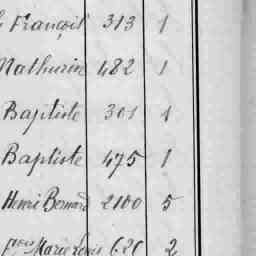 François 313 1
Mathurin 482 1
Baptiste 301 1
Baptiste 475 1
Henri Bernard 2100 5
Marie Louis 620 2